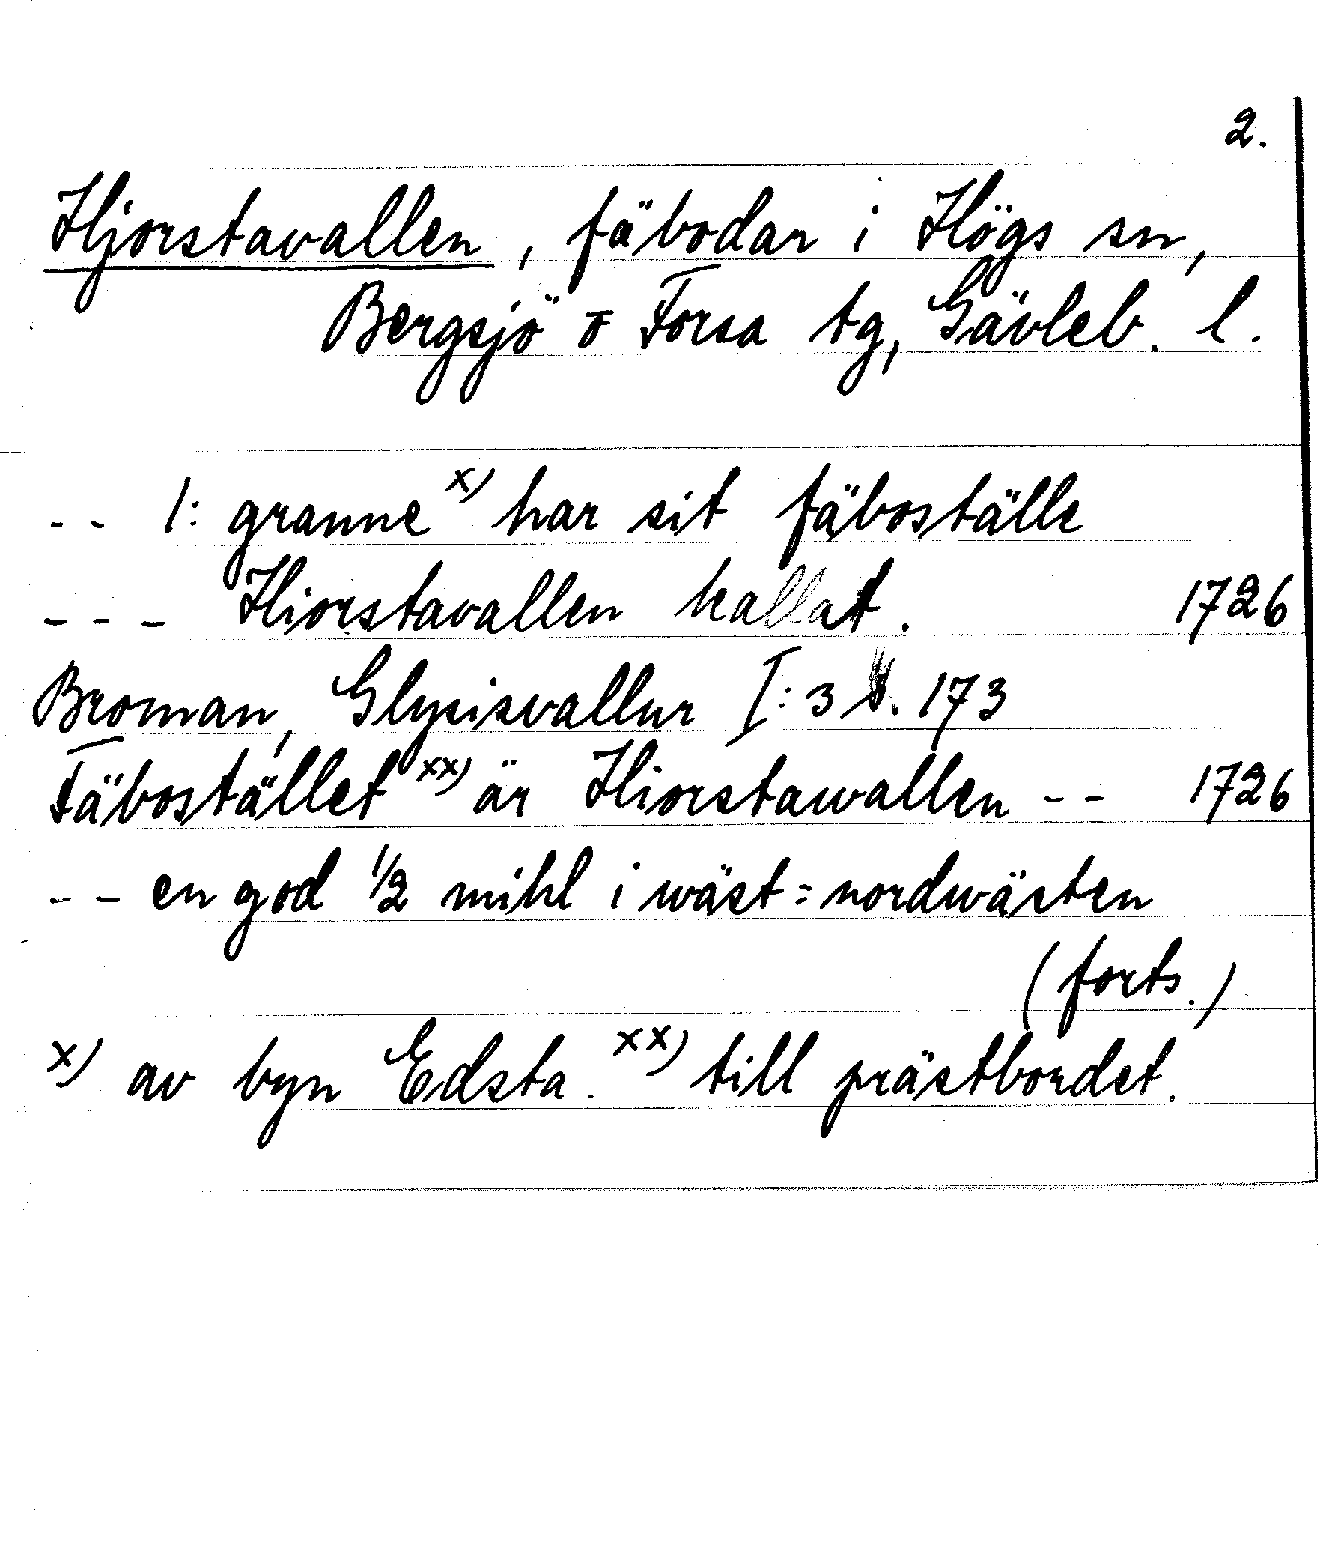 2.
Hjorstavallen, fäbodar i Högs sn,
Bergsjö o Forsa tg, Gävleb. l.
-- 1: granne x) har sit fäboställe
--- Hiorstavallen kallat. 1726
Broman, Glysisvallur I:3 s. 173
Fäbostället xx) är Hiorstawallen -- 1726
-- en god 1/2 mihl i wäst=nordwästen
(forts.)
x) av byn Edsta. xx) till prästbordet.